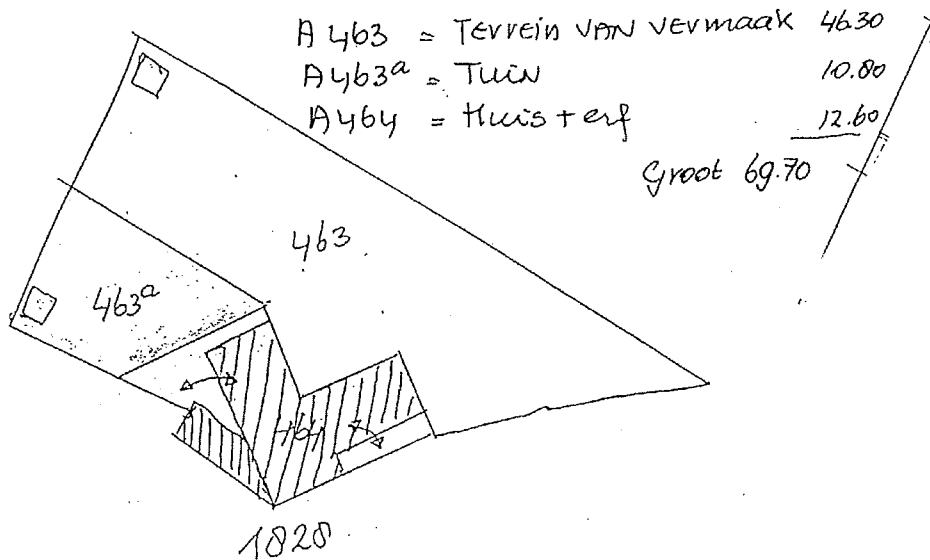 A 463 = Terrein VAN Vermaak 46.30
A463a = Tuin 10.80
A464 = Huis + erf 12.60
Groot 69.70
463
463a
464
1828